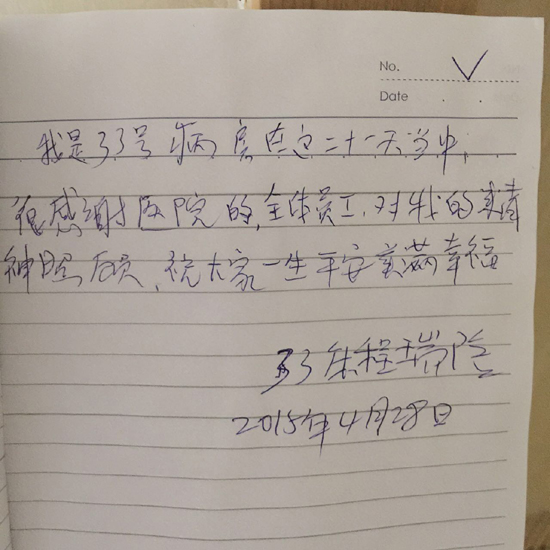 No. √
Date . .
我是33号病房在这二十一天当中,
很感谢医院的,全体员工,对我的真情
,祝大家一生平安美满幸福
33床程瑞
2015年4月28日